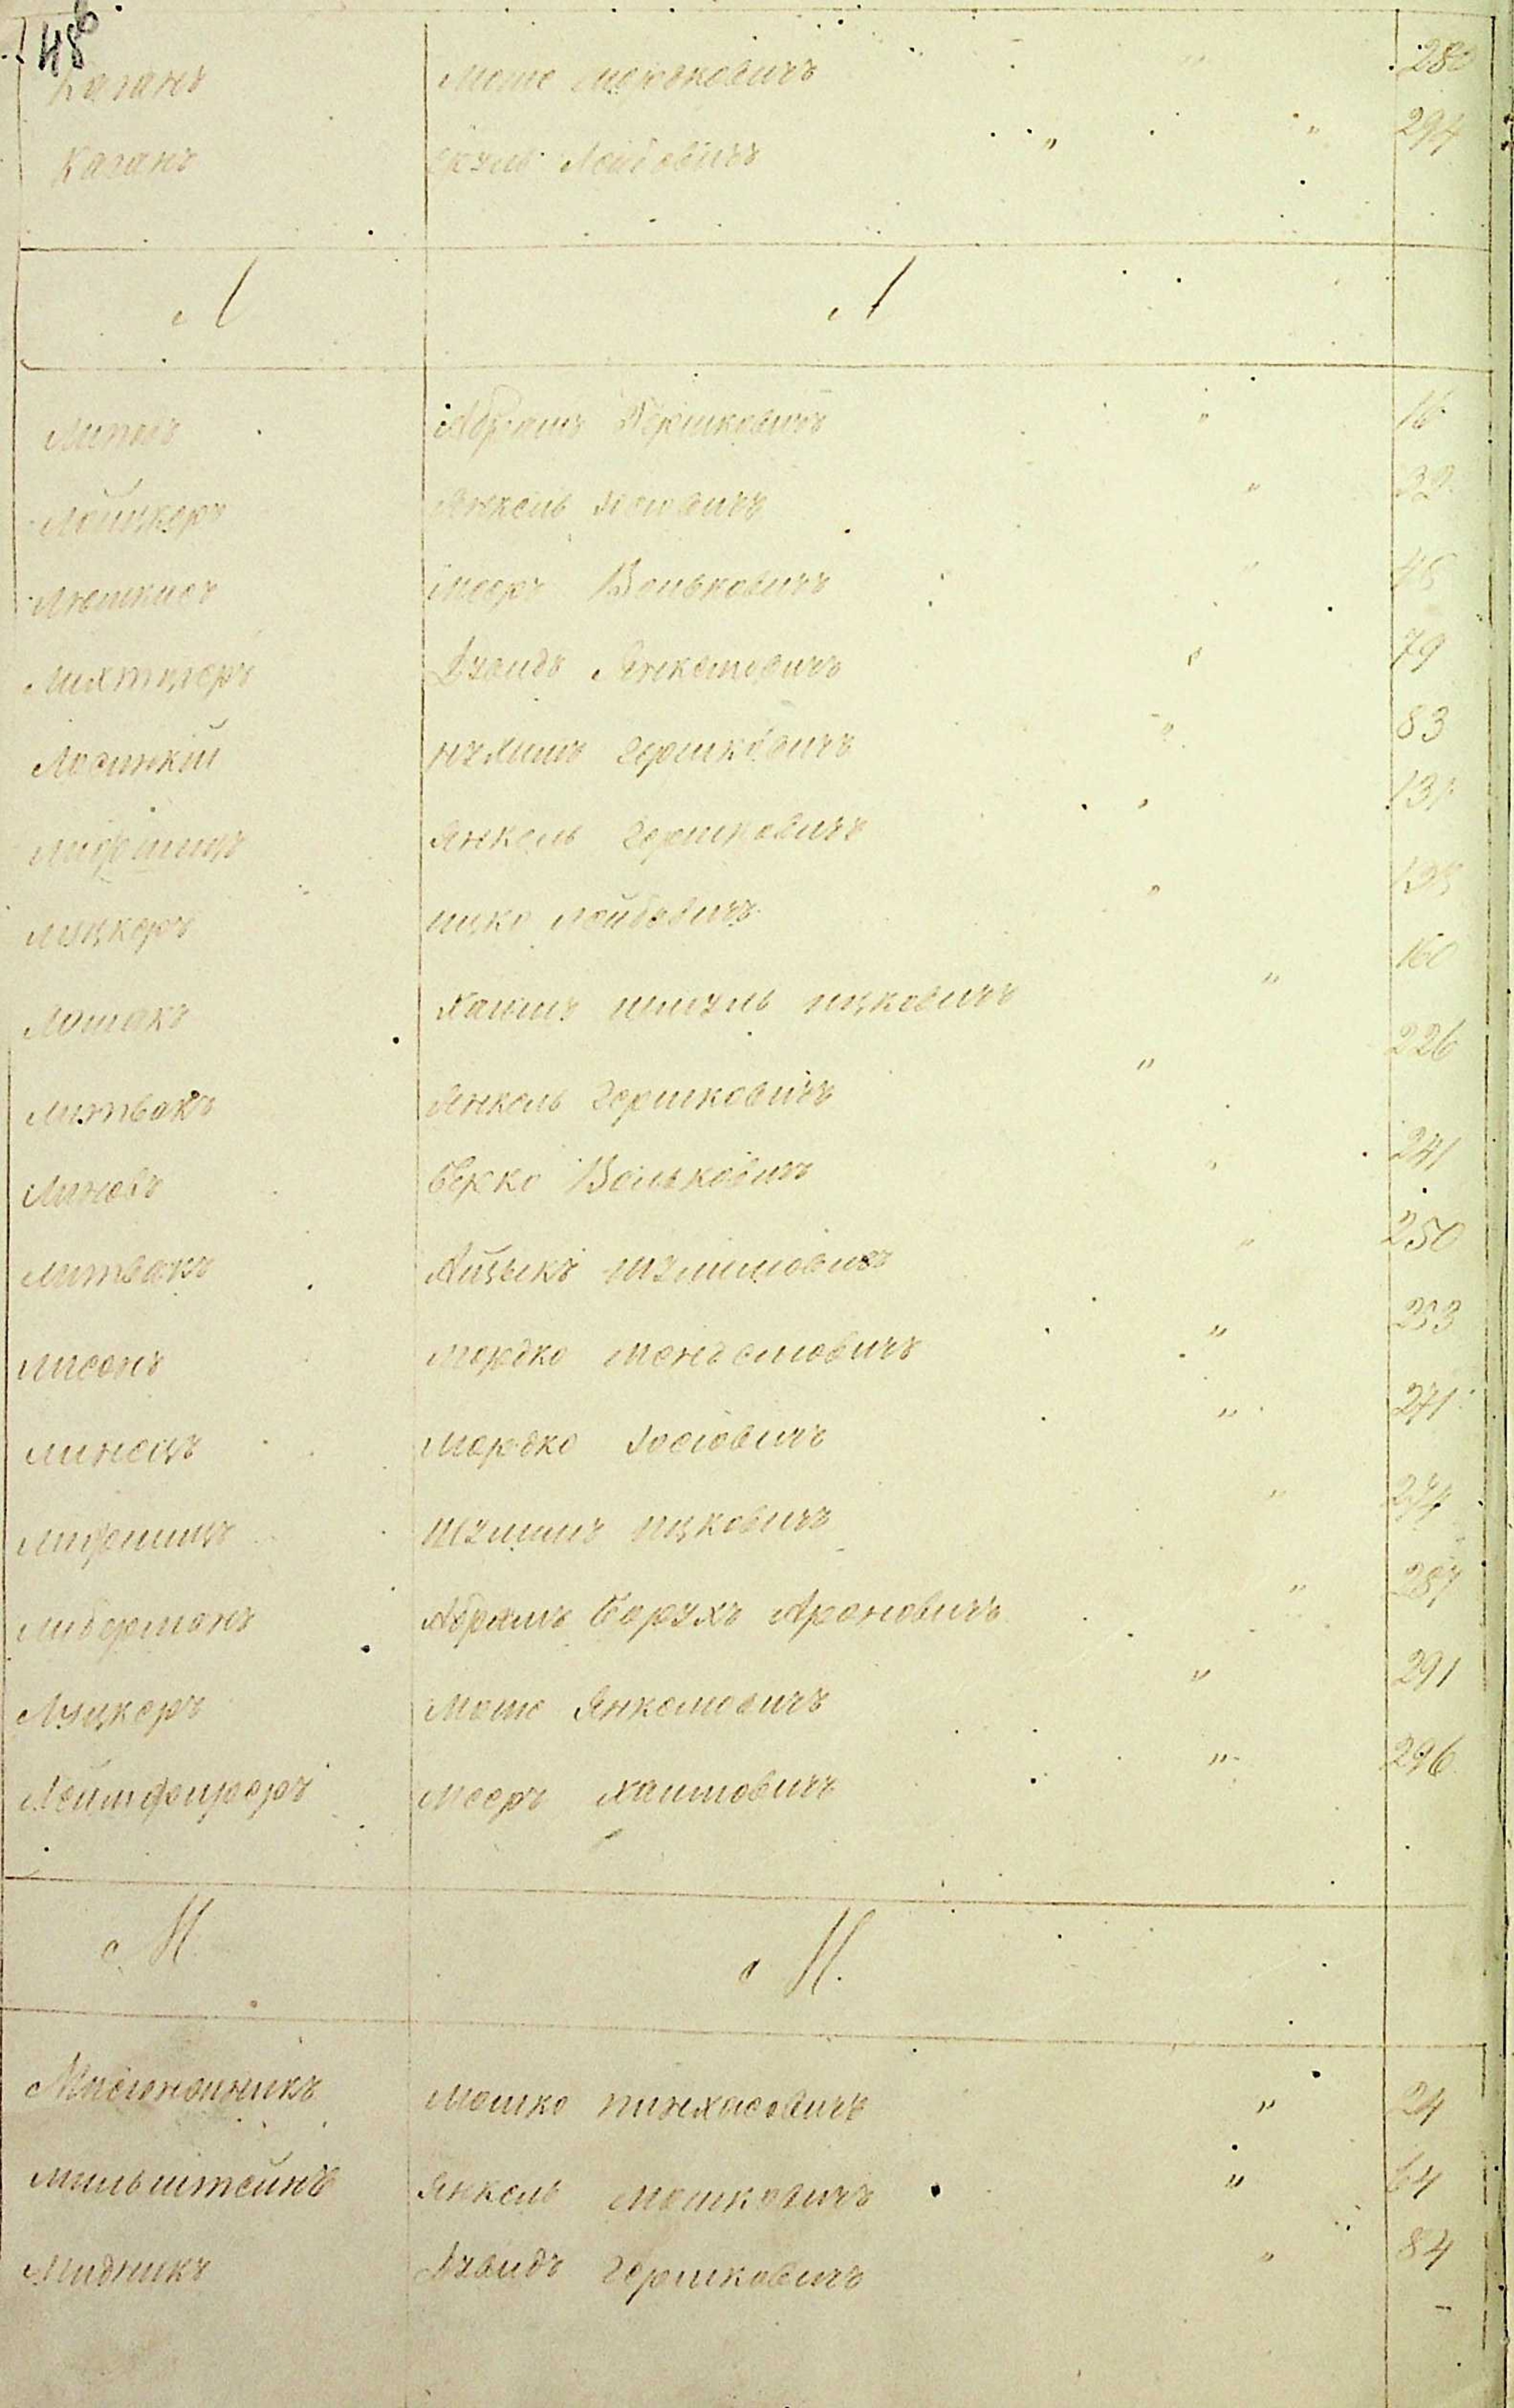 48
Каганъ Моше Мордковичъ " 280
Каганъ Сруль Лейбовичъ " " 294
Л Л
Абрамъ Гершковичъ " 16
Лейцкеръ Янкель Іосіовичъ " 32
Мееръ Вольковичъ " 45
Лихтцгеръ Дувидъ Янкелевичъ " 79
Лосинкій Нухимъ Гершковичъ " 83
Лифшицъ Янкель Гершковичъ " 131
Луцкеръ Ицко Лейбовичъ "
Лошакъ Хаимъ Шмуль Ицковичъ " 160
Литвакъ Янкель Гершковичъ " 226
Линовъ Берко Вольковичъ " 241
Литвакъ Айзыкъ Шулимовичъ " 250
Лисонъ Мордко Мендельовичъ " 253
Линецъ Мордко Іосіовичъ " 271
Лифшицъ Шулимъ Ицковичъ " 274
Либерманъ Абрамъ Борухъ Ароновичъ " 287
Луцкеръ Моше Янкелевичъ " 291
Лейтфигеръ Мееръ Хаимовичъ " 296
М. М.
Мошко Пинхасовичъ " 24
Мильштейнъ Янкель Мошковичъ " 64
Мидникъ Дувидъ Гершковичъ " 84